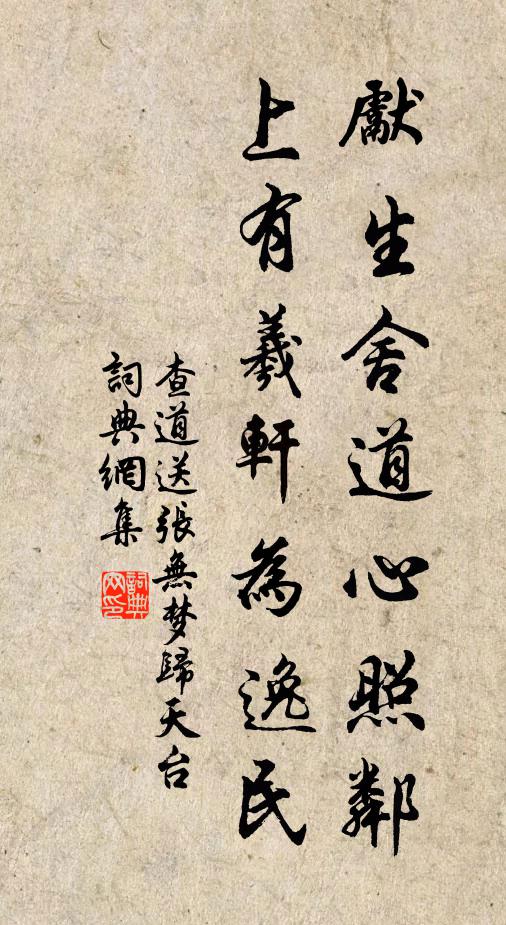 獻生舍道心照鄰
上有羲軒為逸民
查道送張無梦歸天台
詞典網集
詞典網印